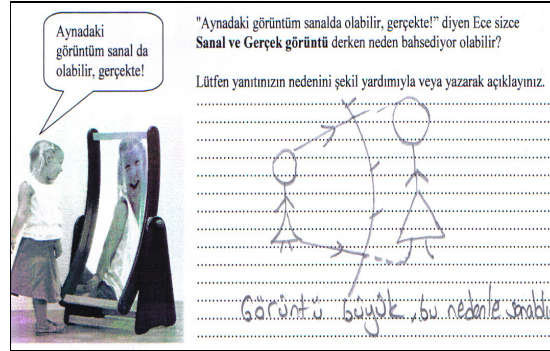 Aynadaki
görüntüm sanal da
olabilir, gerçekte!
"Aynadaki görüntüm sanalda olabilir, gerçekte!" diyen Ece sizce
Sanal ve Gerçek görüntü derken neden bahsediyor olabilir?
Lütfen yanıtınızın nedenini şekil yardımıyla veya yazarak açıklayınız.
Görüntü büyük, bu nedenle sanaldır